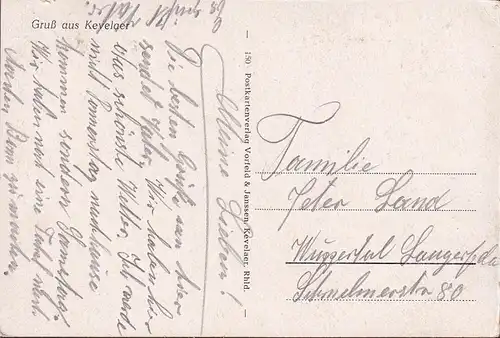 Gruß aus Kevelaer
150 Postkartenverlag Vorfeld & Janssen, Kevelaer, Rhld.
Meine Lieben!
Die besten Grüße von hier
sendet Vater. Wir haben hier
das schönste Wetter. Ich werde
nicht Donnerstag nachhause
kommen sondern Samstag.
Wir haben noch eine
machen.
Es grüßt Vater
Familie
Peter Land
Wuppertal Langerfeld
Schwelmerstr 80